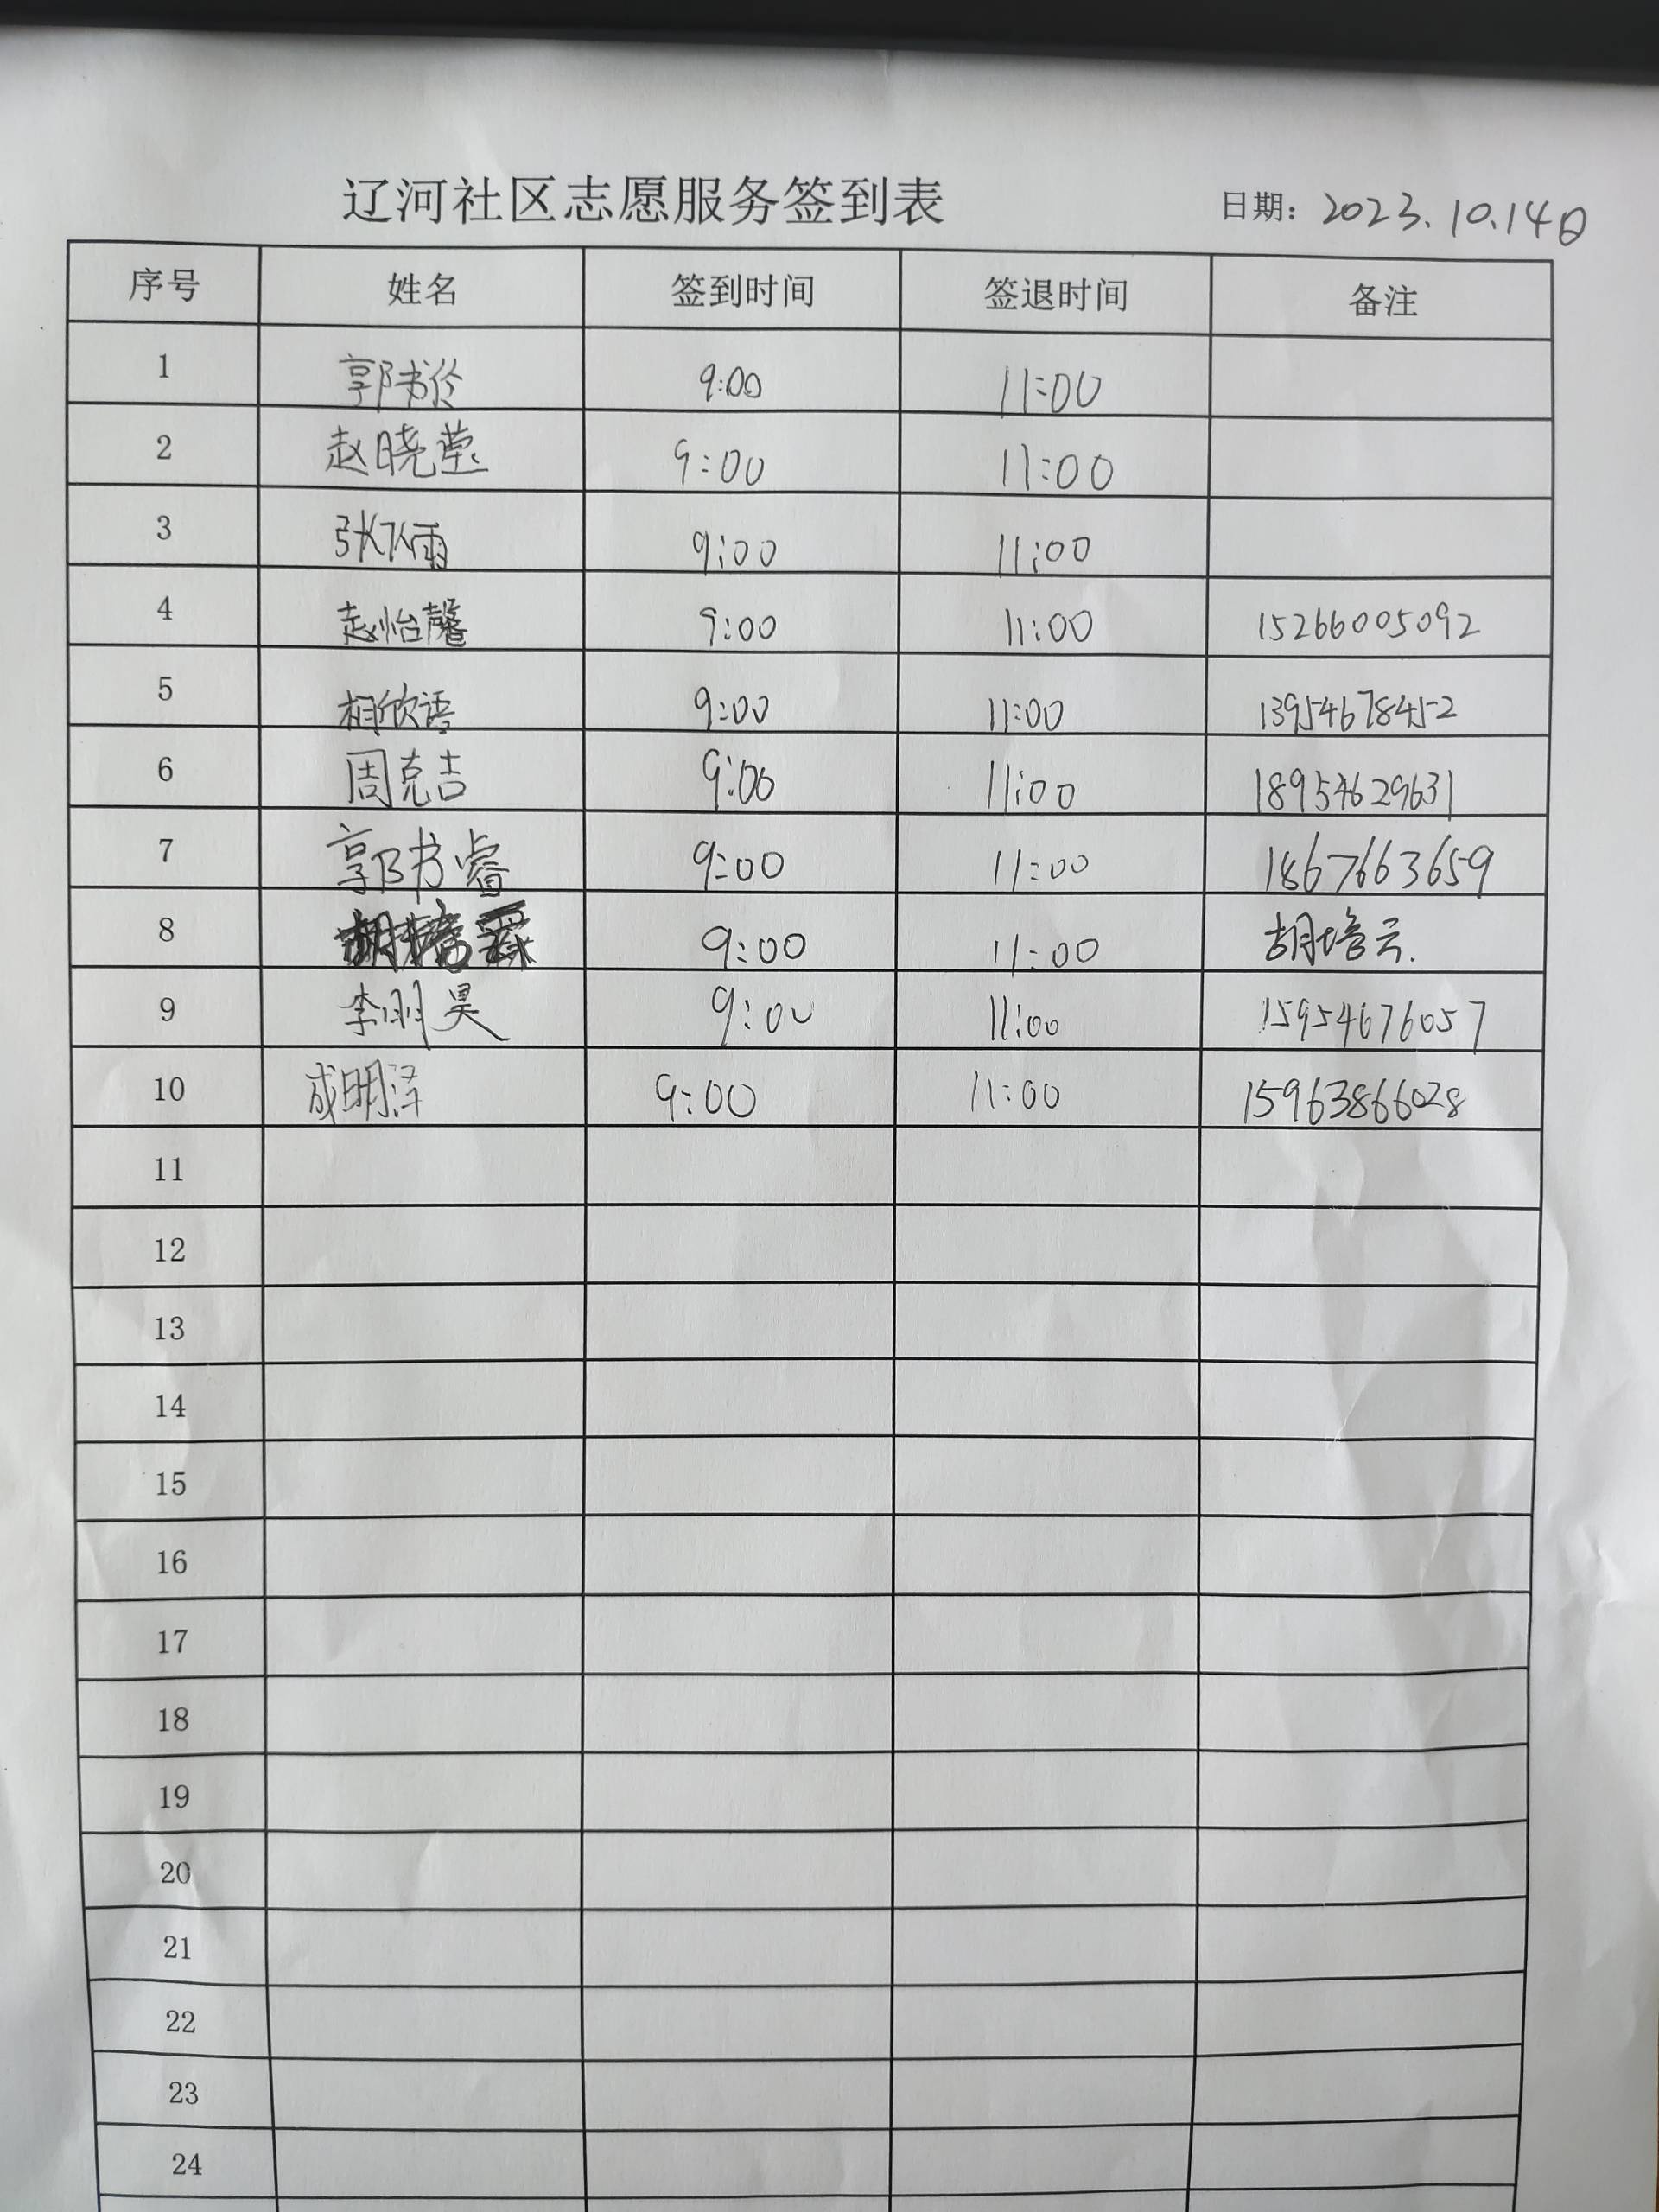 辽河社区志愿服务签到表 日期：2023.10.14日
序号 姓名 签到时间 签退时间 备注
1 郭书伶 9:00 11:00
2 赵晓莹 9:00 11:00
3 张雨 9:00 11:00
4 赵怡馨 9:00 11:00 15266005092
5 相欣语 9:00 11:00 13954678452
6 周克吉 9:00 11:00 18954629631
7 郭书睿 9:00 11:00 1867663659
8 9:00 11:00 胡培云.
9 李明昊 9:00 11:00 15954676057
10 成明泽 9:00 11:00 15963866028
11
12
13
14
15
16
17
18
19
20
21
22
23
24